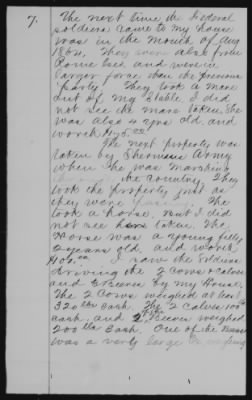 7.
The next time the Federal
soldiers came to my house
was in the Month of Aug
1864. They were also from
Rome and were in
larger force than the previous
party. They took a Mare
out of my Stable I did
not see the mare taken. She
was also 4 yrs old and
worth
The next property was
taken by Shermans Army
when he was marching
the Country. They
took the property just as
they were passing. They
took a horse. But I did
not see taken. The
Horse was a young filly
2 years old and worth
I saw the Soldiers
driving the 2 Cows 2 Calves
and Beeves by my House.
The 2 Cows weighed at least
320 lbs Each. The 2 Calves 100 lbs
Each. and Beeves weighed
200 lbs Each. One of the
was a very large